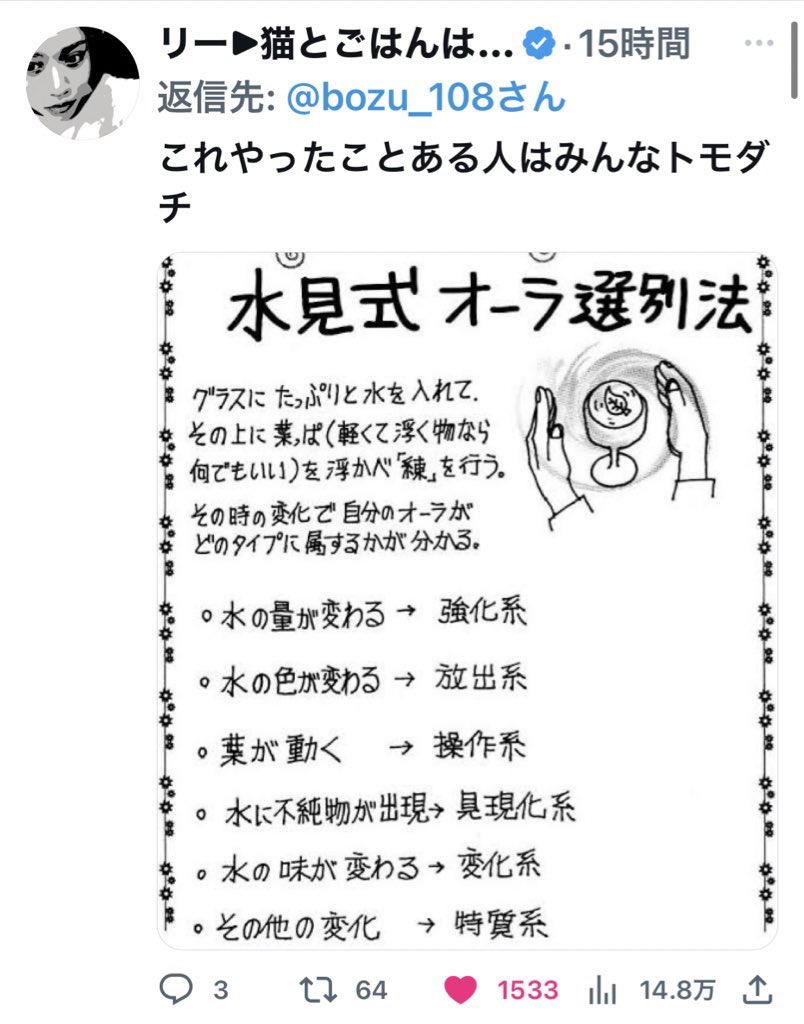 リー▶猫とごはんは... ・15時間
返信先: @bozu_108さん
これやったことある人はみんなトモダ
チ
水見式 オーラ選別法
グラスに たっぷりと水を入れて.
その上に葉っぱ(軽くて浮く物なら
何でもいい)を浮かべ「練」を行う。
その時の変化で自分のオーラが
どのタイプに属するかが分かる。
○水の量が変わる → 強化系
○水の色が変わる → 放出系
○葉が動く → 操作系
○水に不純物が出現→ 具現化系
○水の味が変わる → 変化系
○その他の変化 → 特質系
3 64 1533 14.8万